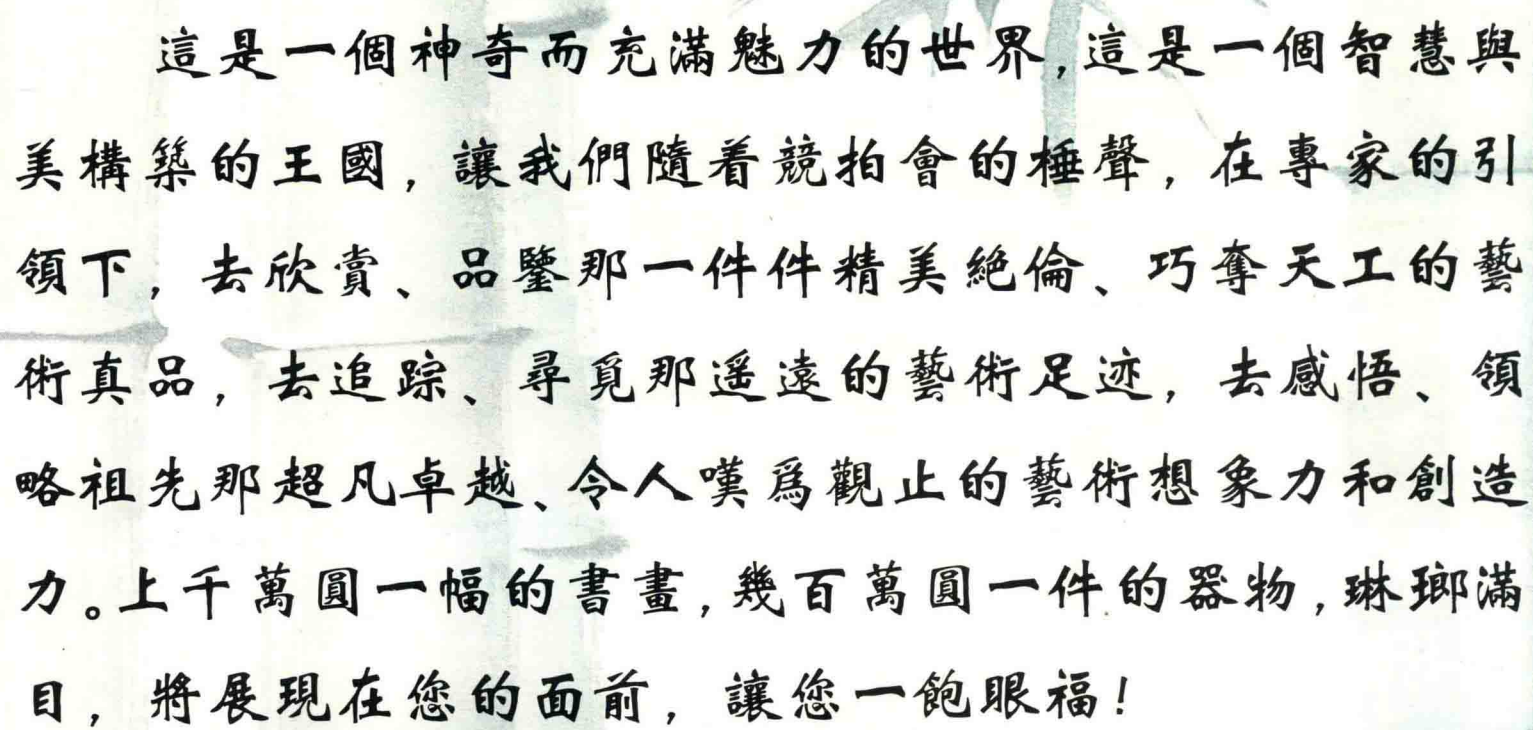 這是一個神奇而充滿魅力的世界,這是一個智慧與
美構築的王國，讓我們隨着競拍會的棰聲，在專家的引
領下，去欣賞、品鑒那一件件精美絕倫、巧奪天工的藝
術真品，去追踪、尋覓那遥遠的藝術足迹，去感悟、領
略祖先那超凡卓越、令人嘆爲觀止的藝術想象力和創造
力。上千萬圓一幅的書畫,幾百萬圓一件的器物,琳瑯滿
目，將展現在您的面前，讓您一飽眼福！